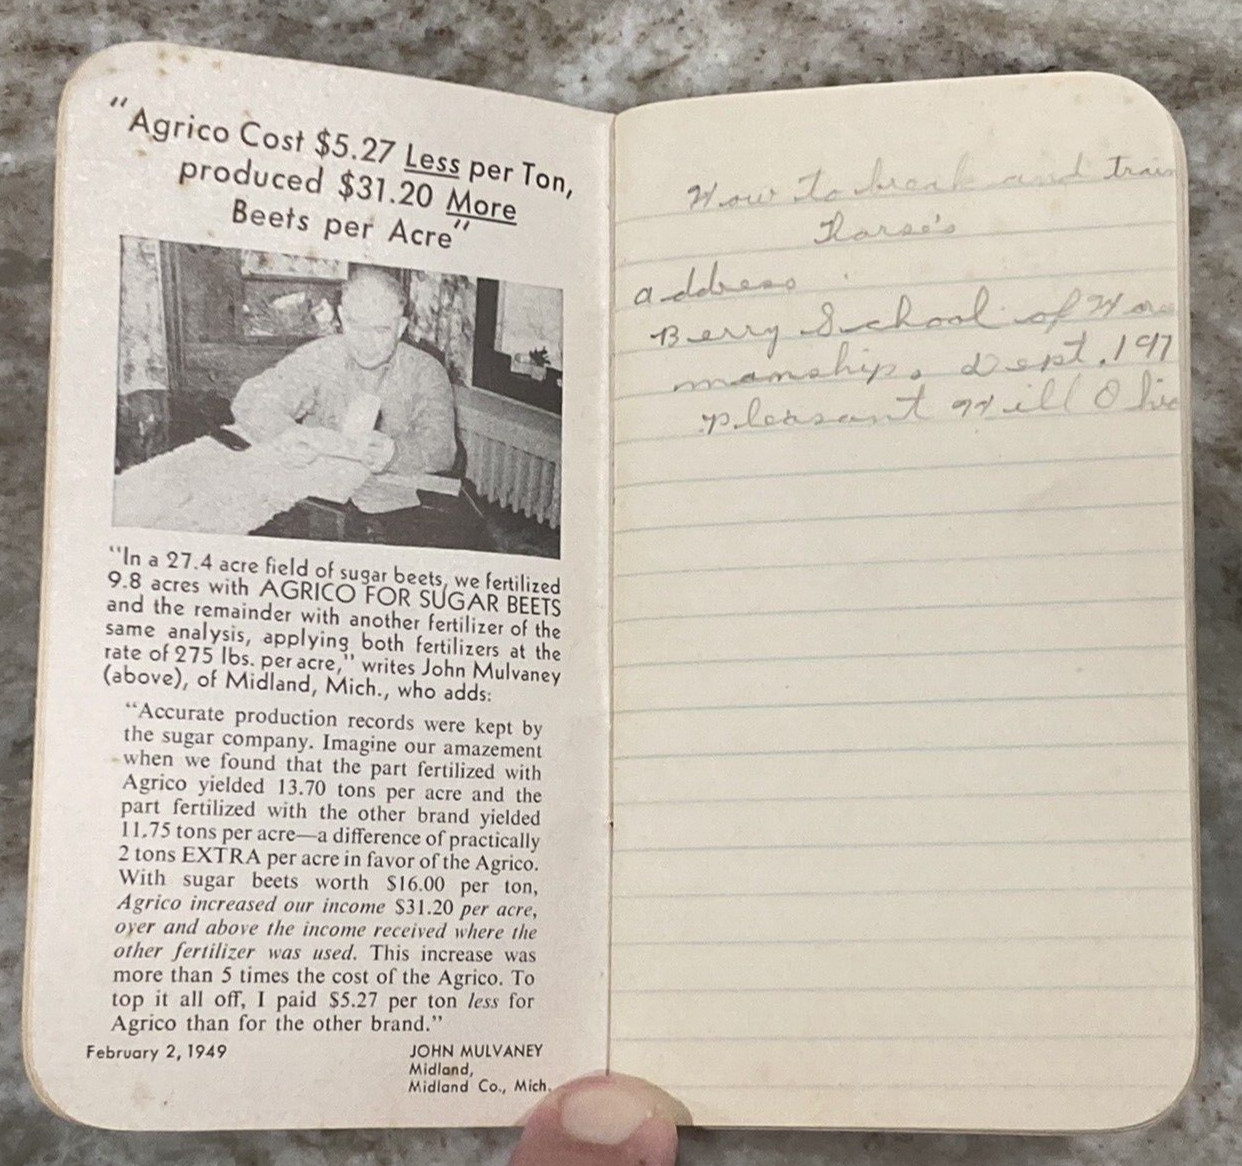 "Agrico Cost $5.27 Less per Ton,
produced $31.20 More
Beets per Acre"
"In a 27.4 acre field of sugar beets, we fertilized
9.8 acres with AGRICO FOR SUGAR BEETS
and the remainder with another fertilizer of the
same analysis, applying both fertilizers at the
rate of 275 lbs. per acre," writes John Mulvaney
(above), of Midland, Mich., who adds:
"Accurate production records were kept by
the sugar company. Imagine our amazement
when we found that the part fertilized with
Agrico yielded 13.70 tons per acre and the
part fertilized with the other brand yielded
11.75 tons per acre—a difference of practically
2 tons EXTRA per acre in favor of the Agrico.
With sugar beets worth $16.00 per ton,
Agrico increased our income $31.20 per acre,
over and above the income received where the
other fertilizer was used. This increase was
more than 5 times the cost of the Agrico. To
top it all off, I paid $5.27 per ton less for
Agrico than for the other brand."
February 2, 1949
JOHN MULVANEY
Midland,
Midland Co., Mich.
How to break and train
Horse's
address
Berry School of Hors
manship. Dept. 197
pleasant Hill Ohio